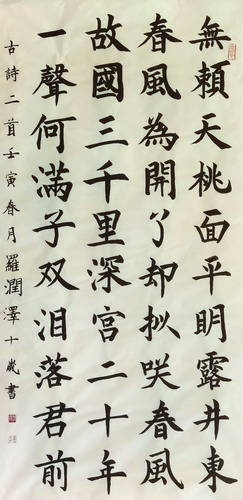 無賴夭桃面平明露井東
春風為開了却拟咲春風
故國三千里深宫二十年
一聲何滿子双泪落君前
古詩二首壬寅春月羅潤澤十歲書